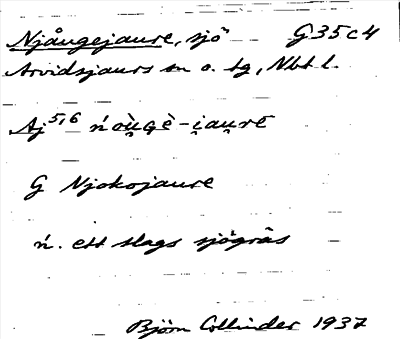 Njångejaure, sjö G35c4
Arvidsjaurs sn o. tg, Nbt. l.
Aj 5,6 ńou̯gè-i̯au̯rē
G Njokojaure
ń. ett slags sjögräs
Björn Collinder 1937